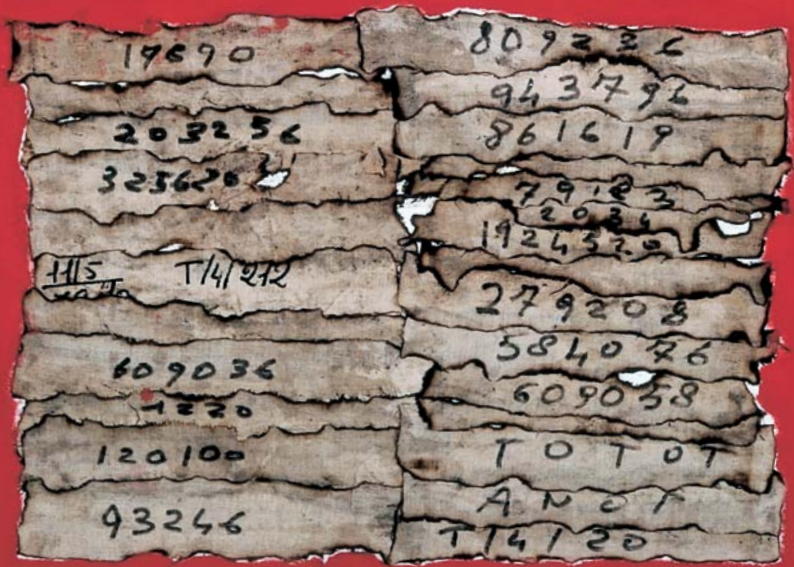 19690
203256
323620
11/5
T/4/212
609036
1220
120100
93246
809236
943796
861619
79183
2034
1924520
279208
584076
609058
TOTOT
ANOT
T/4/20